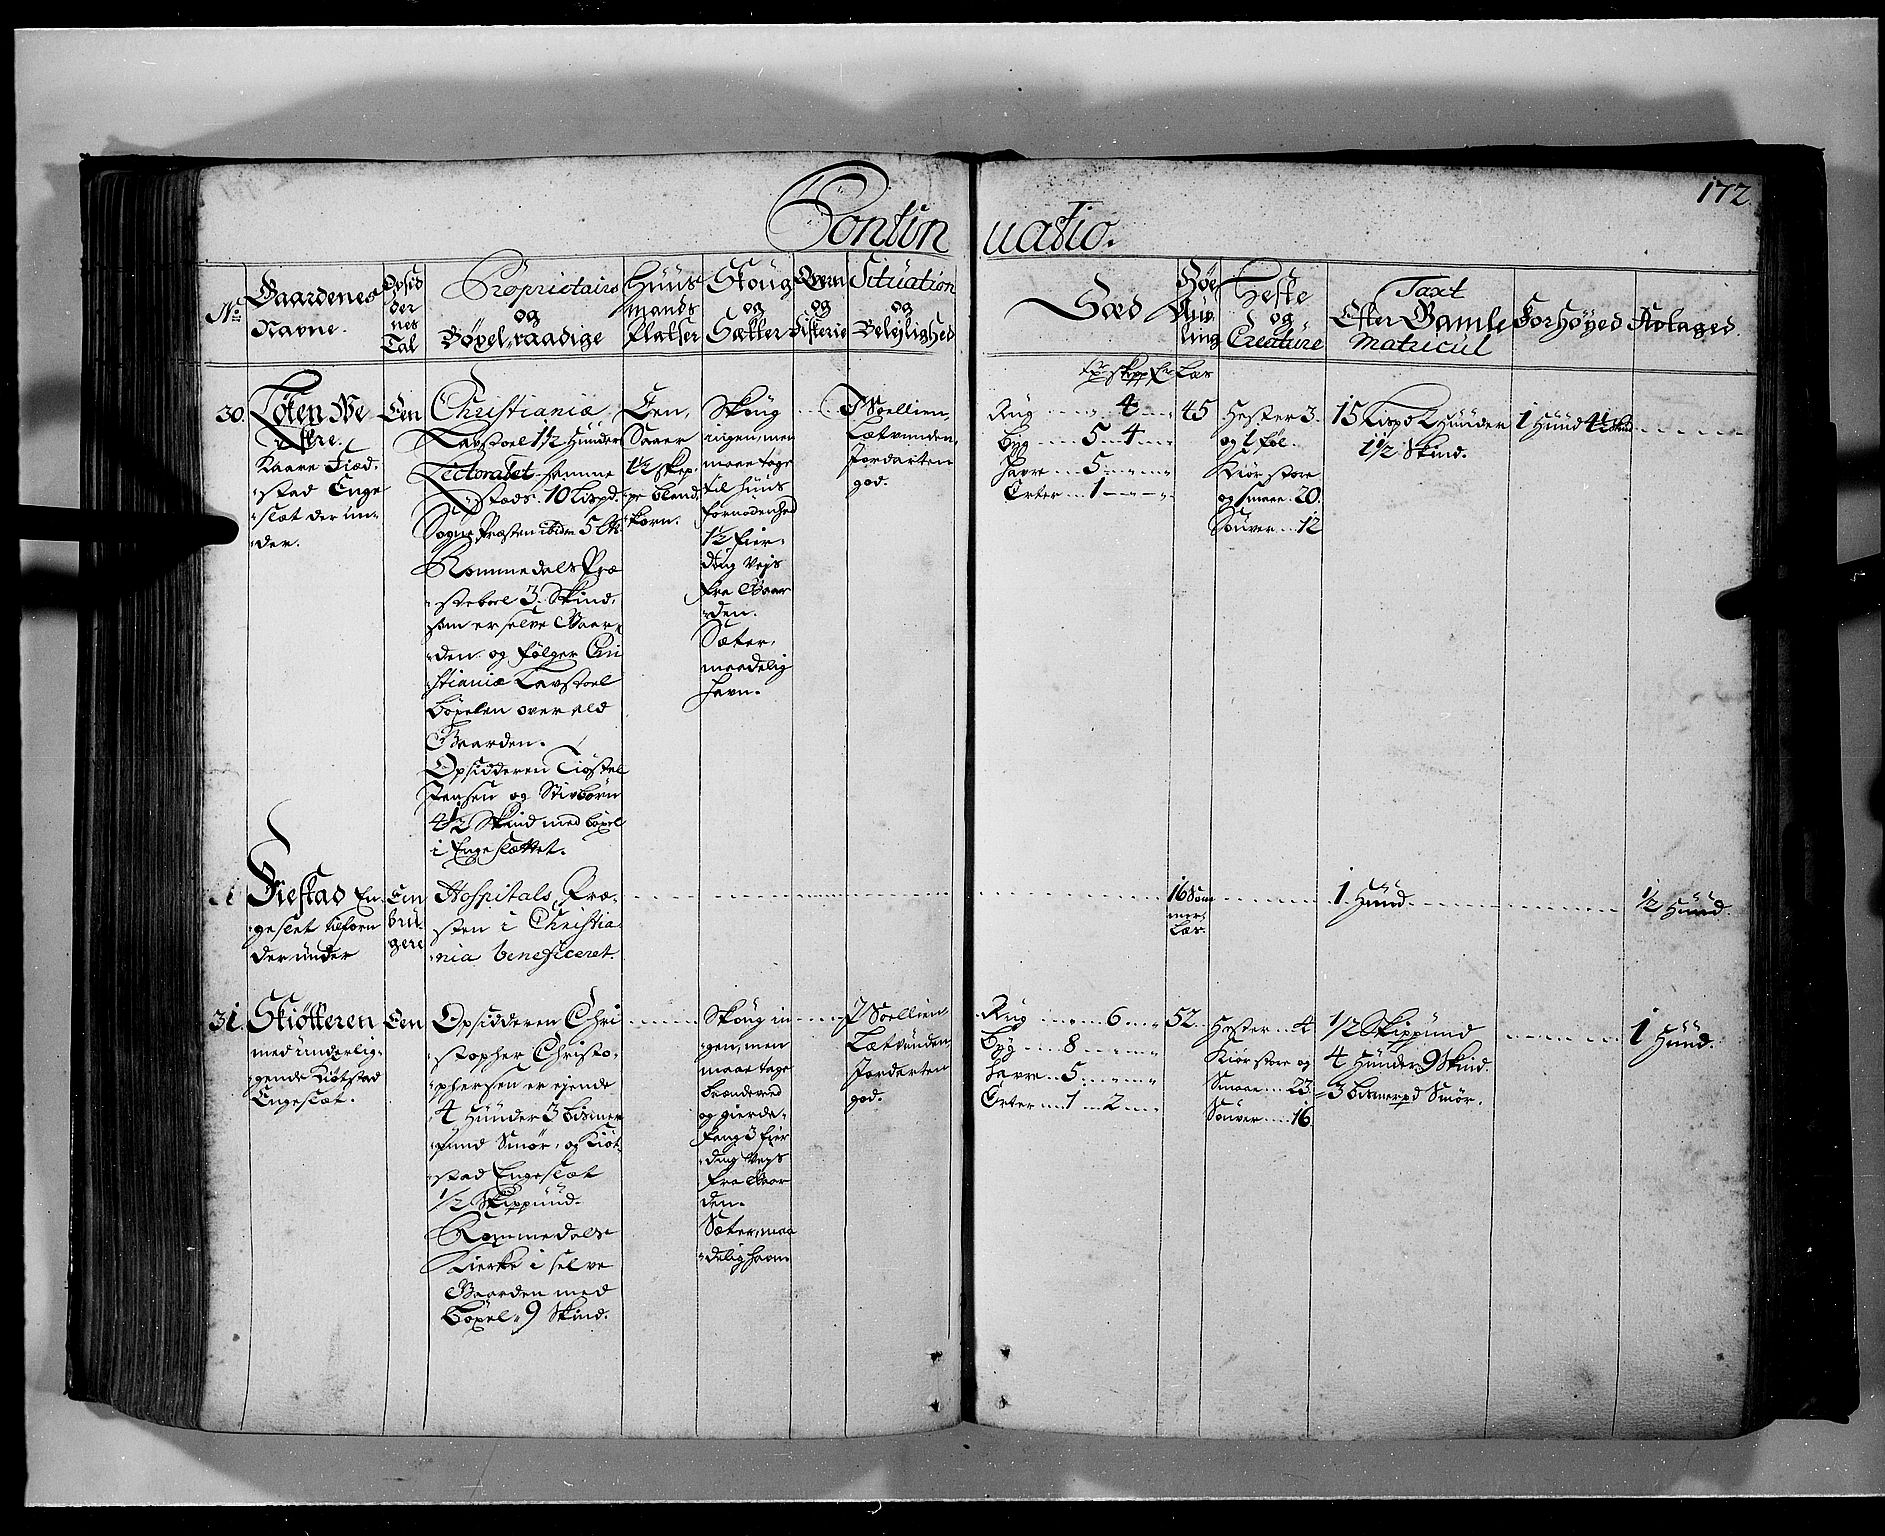 172.
Continuatio.
No
Gaardenes
Navne.
Opsid
der
nes
Tal
Proprietairs
og
Böxel-raadige
Huus
mands
Pladser
Skoug
og
Sætter
Qvern
og
Fiskerie
Situation
og
Beleylighed
Sæd
Höe
Auf
ling
Heste
og
Creature
Taxt
Efter Gamle
Matricul
Forhöyed
Aftaged.
30.
Töten We
stre.
stad Enge
slæt der un-
der.
Een
Christianiæ
Lavstoel 1½ Hunder
Lectoratet samme
stads 10 Lispd.
Sogne Præsten ibidem
Rommedals Præ
stebol 3 Skind,
som er selve Gaar
den og følger Cri
stianiæ Lavstoel
böxelen over ald
Gaarden.
Opsidderen
Jensen og Stivbørn
4½ Skind med böxel
i Engeslættet.
Een,
Saaer
1½ Skep-
pe bland-
korn.
Skoug
ingen, men
maae tage
til huus
fornødenhed
1½ Fier-
ding Veys
fra Gaar
den.
Sæter,
maadelig
havn.
Soellien,
Lætvunden,
Jordarten
god.
Tr skepp fr
Læs
Rug 4
Byg 5 4
Havre 5
Erter 1
45
Hester 3.
og 1 føl.
Kiör store
og smaae 20.
Souver 12
15 Lispd 2 Hunder
1½ Skind.
1 Hund 4½ Skind
Fiestad En-
geslæt tilforn
der under
Een
bru-
gere
Hospitals Præ-
sten i Christia
nia beneficeret
16 Som
mer
Læs
1 Hund.
½ Hund.
31.
Skiötteren
med underlig-
gende Kiötstad
Engeslæt.
Een
Opsidderen Chri
stopher Christo-
phersen er eyende
4 Hunder 3 bismer
pund Smør, og Kiöt-
stad Engeslæt
½ Skippund.
Rommedals
Kierke i selve
Gaarden med
böxel 9 Skind.
Skoug in
gen, men
maae tage
brændeved
og gierde-
fang 3 Fier
ding Veys
fra Gaar
den.
Sæter, maa
delig havn
Soellien
Lætvunden
Jordarten
god.
Rug 6
Byg 8
Havre 5
Erter 1 2
52.
Hester 4
Kiör store og
Smaae 23
Souver 16
½ Skippund
4 Hunder 9 Skind.
3 bismerpd Smör.
1 Hund.